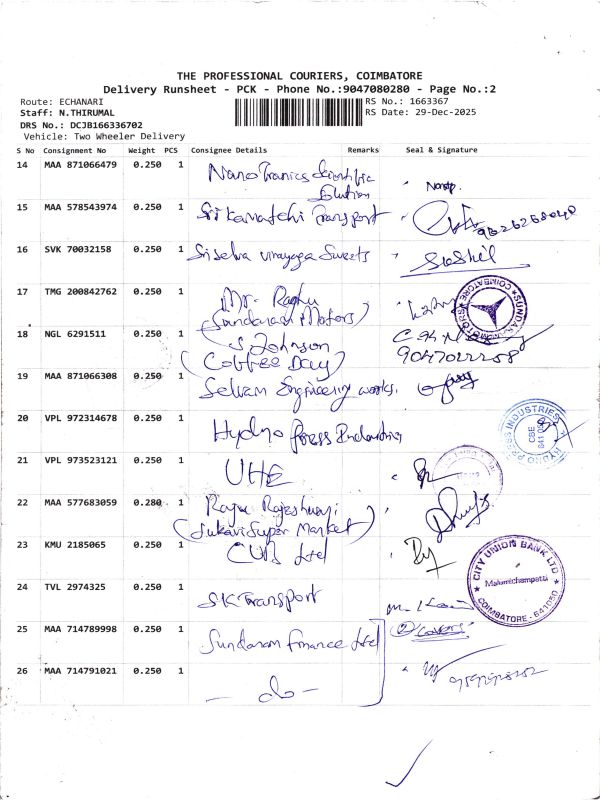 THE PROFESSIONAL COURIERS, COIMBATORE
Delivery Runsheet - PCK - Phone No.:9047080280 - Page No.:2
Route: ECHANARI RS No.: 1663367
Staff: N.THIRUMAL RS Date: 29-Dec-2025
DRS No.: DCJB166336702
Vehicle: Two Wheeler Delivery
S No Consignment No Weight PCS Consignee Details Remarks Seal & Signature
14 MAA 871066479 0.250 1 Nano Tronics Scientific
Solution
15 MAA 578543974 0.250 1 Sri Kamatchi Transport
16 SVK 70032158 0.250 1 Sri Selva vinayaga Sweets
17 TMG 200842762 0.250 1 Mr. Raghu
(Sundaram Motors)
18 NGL 6291511 0.250 1 S Johnson
(Coffee Day) 9047022258
19 MAA 871066308 0.250 1 Selvam Engineering works.
20 VPL 972314678 0.250 1 Hydro Press Industries
HYDRO PRESS INDUSTRIES
CBE
21 VPL 973523121 0.250 1 UHE
22 MAA 577683059 0.280 1 Raja Rajeshwari
(Sukavi Super Market)
23 KMU 2185065 0.250 1 CUB Ltd
CITY UNION BANK LTD
Malumichampatti
COIMBATORE - 641050
24 TVL 2974325 0.250 1 SK Transport
25 MAA 714789998 0.250 1 Sundaram Finance Ltd ② Covers
26 MAA 714791021 0.250 1 - do -